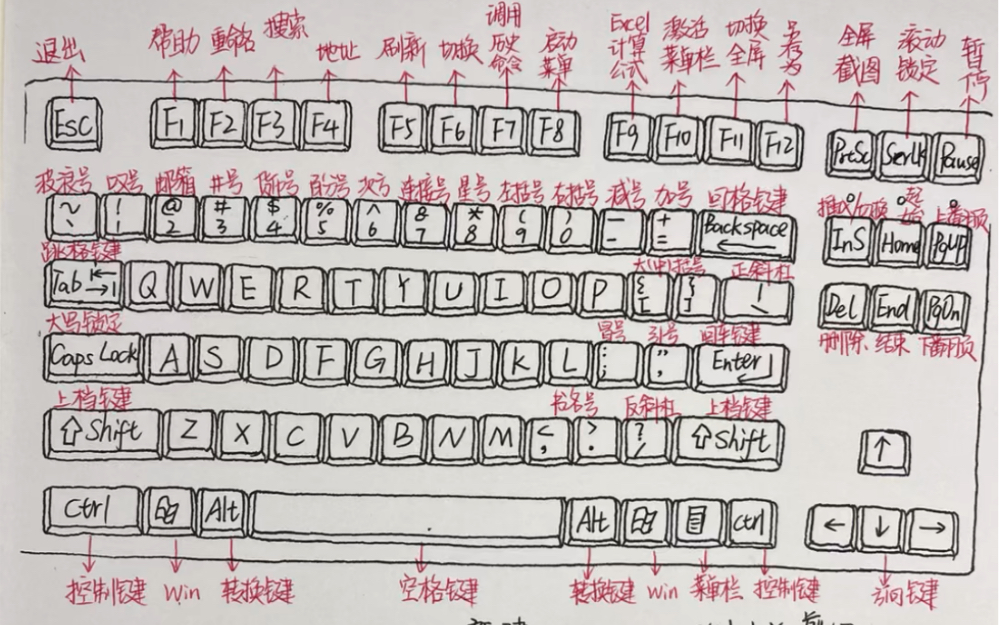 退出 帮助 重命名 搜索 地址 刷新 切换 调用历史命令 启动菜单 Excel计算公式 激活菜单栏 切换全屏 另存为 全屏截图 滚动锁定 暂停
Esc F1 F2 F3 F4 F5 F6 F7 F8 F9 F10 F11 F12 PrtSc ScrLk Pause
波浪号 叹号 邮箱 井号 货币号 百分号 次方 连接号 星号 左括号 右括号 减号 加号 回格键 插入切换 起始 上翻页
~ ` ! 1 @ 2 # 3 $ 4 % 5 ^ 6 & 7 * 8 ( 9 ) 0 — - + = Backspace ← InS Home PgUP
跳格键 大(中)括号 正斜杠
Tab Q W E R T Y U I O P { [ } ] | \ Del End PgDn
大写锁定 冒号 引号 回车键 删除 结束 下翻页
Caps Lock A S D F G H J K L : ; " ' Enter
上档键 书名号 反斜杠 上档键
⇧Shift Z X C V B N M < , > . ? / ⇧Shift ↑
Ctrl Alt Alt Ctrl ← ↓ →
控制键 win 转换键 空格键 转换键 win 菜单栏 控制键 方向键